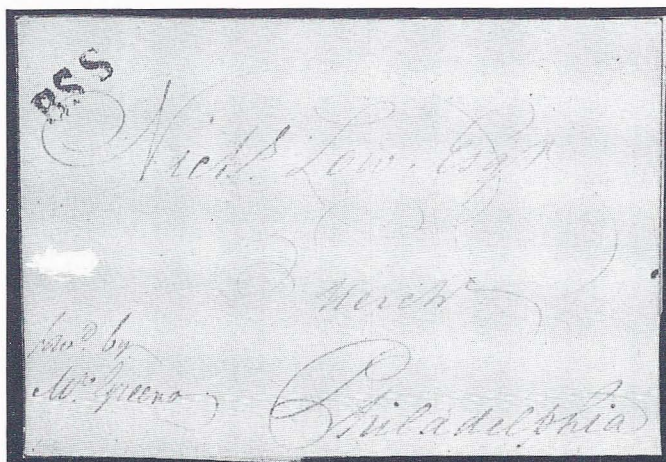 BSS
Nichs. Low. Esqr.
Mercht.
favd. by
Philadelphia